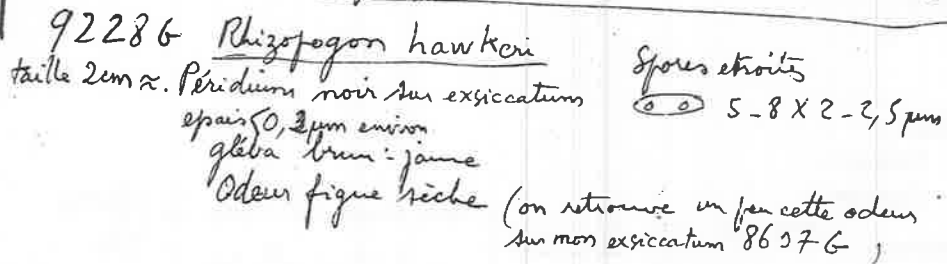 9228G Rhizopogon hawkeri
taille 2cm ≈. Péridium noir sur exsiccatum
epais 0, µm environ
gléba brun-jaune
Odeur figue sèche (on retrouve un peu cette odeur
sur mon exsiccatum 8637G)
Spores etroites
5-8 X 2-2,5 µm